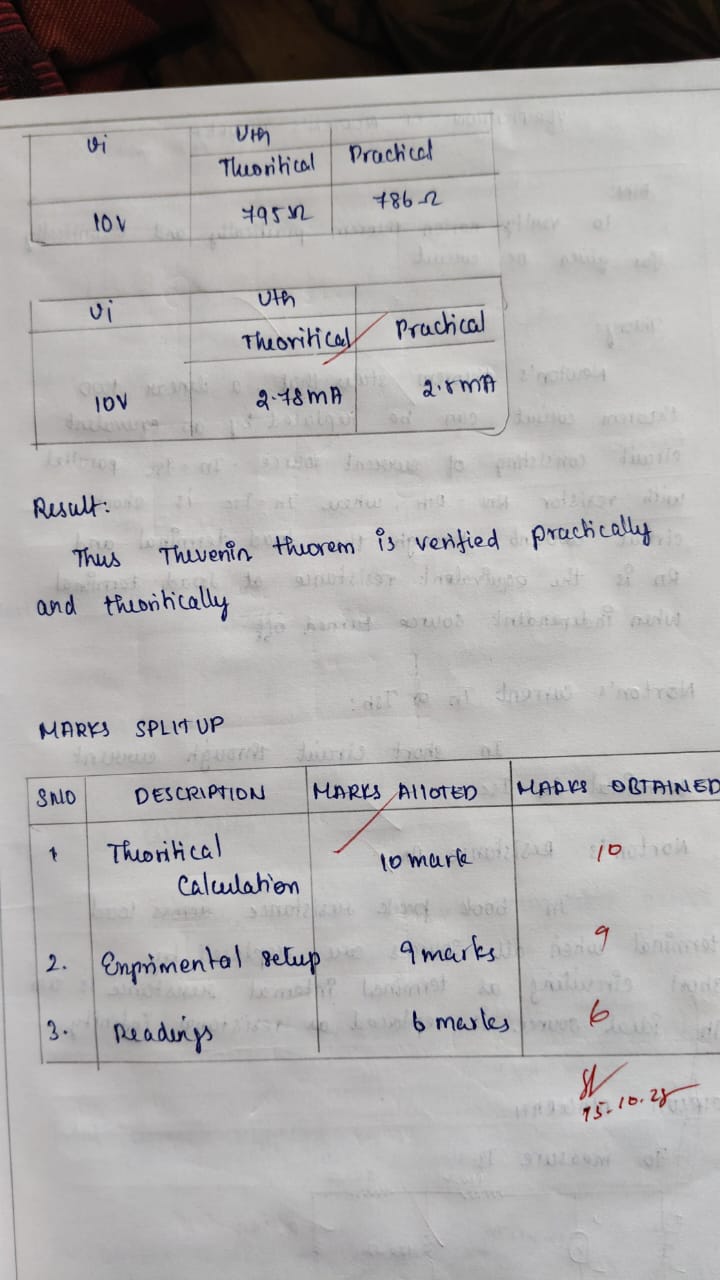 Vi Vth
Theoritical Practical
10V 795Ω 786Ω
Vi Vth
Theoritical Practical
10V 2.78mA 2.8mA
Result:
Thus Thevenin theorem is verified practically
and theoritically
MARKS SPLITUP
SNO DESCRIPTION MARKS AllOTED MARKS OBTAINED
1 Theoritical 10 mark 10
Calculation
2. Enprimental setup 9 marks 9
3. Readings 6 marks 6